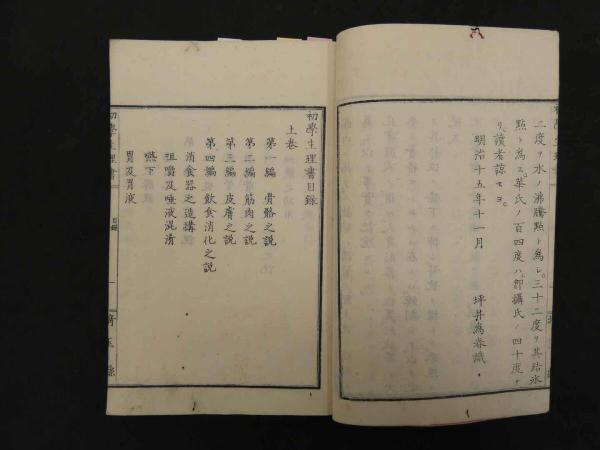 二度ヲ水ノ沸騰點ト為シ。三十二度ヲ其結氷
點ト為ス。華氏ノ百四度ハ。即攝氏ノ四十度ナ
リ。讀者諒セヨ。
明治十五年十一月
坪井為春識。
初學生理書目錄
上巻
第一編 骨骼之説
第二編 筋肉之説
第三編 皮膚之説
第四編 飲食消化之説
消食器之造構
咀嚼及唾液混淆
嚥下
胃及胃液
初學生理書
目錄
一